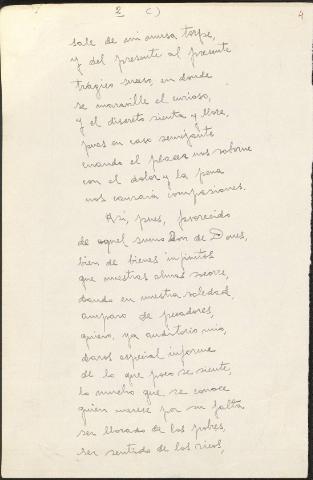 2 C) 4
sale de mi musa torpe,
y del presente al presente
trágico suceso, en donde
se maraville el curioso,
y el discreto sienta y llore,
pues en caso semejante
cuando el placer nos soborne
con el dolor y la pena
nos causará compasiones.
Así, pues, favorecido
de aquel sumo Don de Dones,
bien de bienes infinitos
que nuestras almas socorre,
dando en nuestra soledad,
amparo de pecadores,
quiero, ya auditorio mío,
daros especial informe
de lo que poco se siente,
lo mucho que se conoce
quien merece por su falta
ser llorado de los pobres,
ser sentido de los ricos,